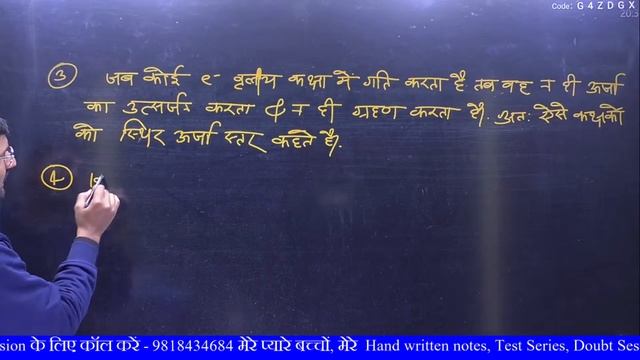 Code: G4ZDGX
③ जब कोई e- वृतीय कक्षा में गति करता है तब वह न ही ऊर्जा
का उत्सर्जन करता & न ही ग्रहण करता है. अतः ऐसे कक्षकों
को स्थिर ऊर्जा स्तर कहते है.
④
sion के लिए कॉल करें - 9818434684 मेरे प्यारे बच्चों, मेरे Hand written notes, Test Series, Doubt Ses